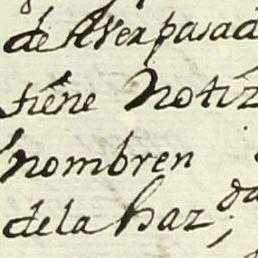 de Aver pasad
tiene Notiz
nombren
dela haz.da;